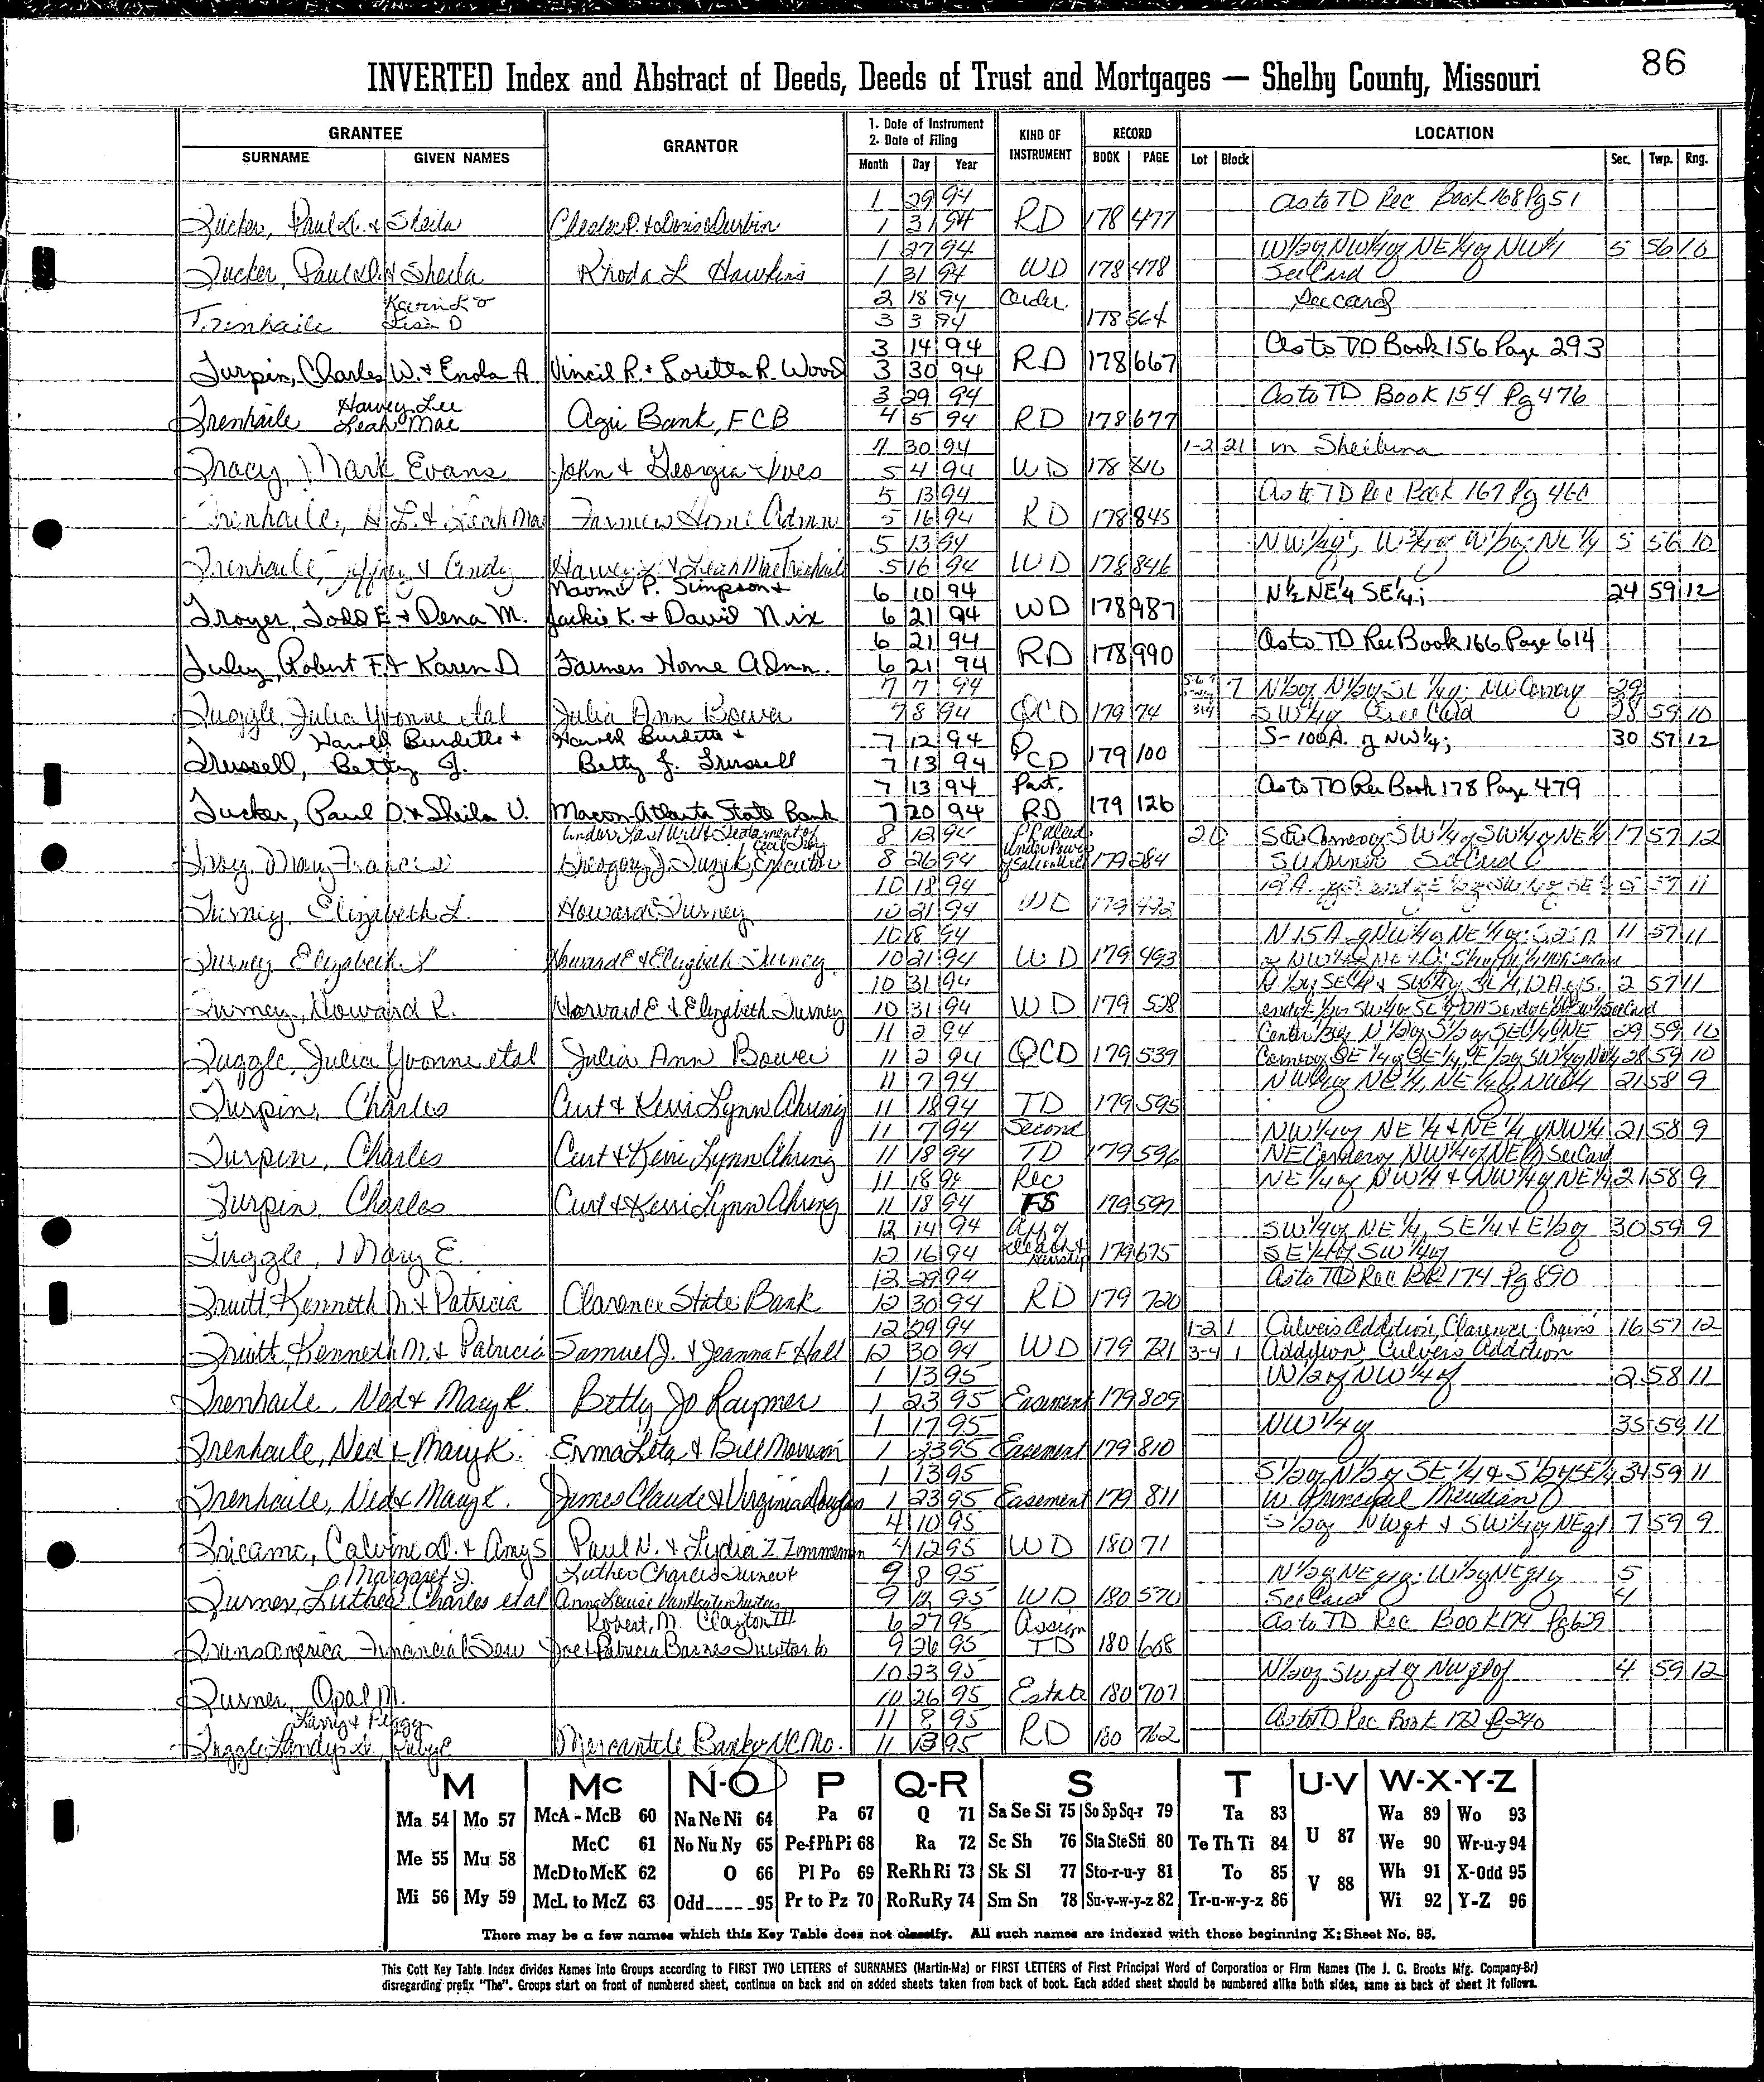 86
INVERTED Index and Abstract of Deeds, Deeds of Trust and Mortgages — Shelby County, Missouri
GRANTEE GRANTOR 1. Date of Instrument 2. Date of Filing KIND OF INSTRUMENT RECORD LOCATION
SURNAME GIVEN NAMES Month Day Year BOOK PAGE Lot Block Sec. Twp. Rng.
1 29 94 As to TD Rec Book 168 Pg 51
Tucker, Paul D. & Sheila 1 31 94 RD 178 477
1 27 94 W½ of NW¼ of NE¼ of NW¼ 5 56 10
Tucker, Paul D. & Sheila Rhoda L Hawkins 1 31 94 WD 178 478 See Card
Kevin L & 2 18 94 Order See card
Trenhaile Lisa D 3 3 94 178 564
3 14 94 As to TD Book 156 Page 293
Turpin, Charles W. & Enola A Vincil R. & Loretta R. Wood 3 30 94 RD 178 667
Harvey Lee 3 29 94 As to TD Book 154 Pg 476
Trenhaile Leah Mae Agri Bank, FCB 4 5 94 RD 178 677
30 94 1-2 21 in Shelbina
Tracy, Mark Evans John & Georgia Ives 5 4 94 WD 178 816
5 13 94 As to TD Rec Book 167 Pg 460
Trenhaile, H L. & Leah Mae Farmers Home Admn 5 16 94 RD 178 845
5 13 94 5 56 10
Trenhaile, Jeffrey & Cindy Harvey L. & Leah Mae Trenhaile 5 16 94 WD 178 846
Naomi P. Simpson & 6 10 94 N½ NE¼ SE¼; 24 59 12
Troyer, Todd E & Dena M. Jackie K. & David Nix 6 21 94 WD 178 987
6 21 94 As to TD Rec Book 166 Page 614
Tuley, Robert F. & Karen D Farmers Home Admn. 6 21 94 RD 178 990
7 7 94 7 N½ of N½ of SE¼ of; NW Corner of 29
Tuggle, Julia Yvonne etal Julia Ann Bower 7 8 94 QCD 179 74 SW¼ of See Card 28 59 10
Harold Burdette & Harold Burdette & 7 12 94 S-100A. of NW¼; 30 57 12
Trussell, Betty J. Betty J. Trussell 7 13 94 QCD 179 100
7 13 94 Part. As to TD Rec Book 178 Page 479
Tucker, Paul D. & Sheila V. Macon-Atlanta State Bank 7 20 94 RD 179 126
Under Last Will & Testament of 8 12 94 20 SE Corner of SW¼ of SW¼ of NE¼ 17 57 12
Troy, Mary Francis Executor 8 26 94 179 284 SW Corner See Card
10 18 94 57 11
Turney, Elizabeth L. Howard Turney 10 21 94 WD 179 492
10 18 94 11 57 11
Turney Elizabeth L Howard E & Elizabeth Turney 10 21 94 WD 179 493
10 31 94 2 57 11
Turney, Howard R. Howard E & Elizabeth Turney 10 31 94 WD 179 528
11 2 94 Center ½ of N½ of S½ of SE¼ of NE 29 59 10
Tuggle, Julia Yvonne etal Julia Ann Bower 11 2 94 QCD 179 539 Corner of SE¼ of SE¼, E½ of SW¼ of NW¼ 28 59 10
11 7 94 NW¼ of NE¼, NE¼ of NW¼ 21 58 9
Turpin, Charles Curt & Kerri Lynn Ahring 11 18 94 TD 179 595
11 7 94 Second NW¼ of NE¼ & NE¼ of NW¼ 21 58 9
Turpin, Charles Curt & Kerri Lynn Ahring 11 18 94 TD 179 596 NE Corner of NW¼ of NE¼ See Card
11 18 94 Rec NE¼ of NW¼ & NW¼ of NE¼ 21 58 9
Turpin, Charles Curt & Kerri Lynn Ahring 11 18 94 FS 179 597
12 14 94 Aff of SW¼ of NE¼, SE¼ & E½ of 30 59 9
Tuggle, Mary E. 12 16 94 Death & Heirship 179 675 SE¼ of SW¼ of
12 29 94 As to TD Rec Bk 174 Pg 890
Truitt, Kenneth M. & Patricia Clarence State Bank 12 30 94 RD 179 720
12 29 94 1-2 1 Culvers Addition, Clarence; Crains 16 57 12
Truitt, Kenneth M. & Patricia Samuel J. & Jeanna F Hall 12 30 94 WD 179 721 3-4 1 Addition, Culvers Addition
1 13 95 W½ of NW¼ of 2 58 11
Trenhaile, Ned & Mary K. Betty Jo Raymer 1 23 95 Easement 179 809
1 17 95 NW¼ of 35 59 11
Trenhaile, Ned & Mary K. Erma Leta & Bill Morrison 1 23 95 Easement 179 810
1 13 95 S½ of N½ of SE¼ & S½ of SE¼ 34 59 11
Trenhaile, Ned & Mary K. James Claude & Virginia Douglas 1 23 95 Easement 179 811 W. Principal Meridian
4 10 95 S½ of NW qt & SW¼ of NE qt 7 59 9
Tricamo, Calvine D. & Amy S Paul N. & Lydia Z Zimmerman 4 12 95 WD 180 71
Margaret J. Luther Charles Turner & 9 8 95 5
Turner, Luther Charles etal 9 12 95 WD 180 570 See Card 4
Robert M. Clayton III 6 27 95 Assign As to TD Rec Book 174 Pg 629
Transamerica Financial Serv Joe & Patricia Barnes 9 26 95 TD 180 608
10 23 95 4 59 12
Turner, Opal M. 10 26 95 Estate 180 707
Larry & Peggy 11 8 95 As to TD Rec Book 172 Pg 240
Tuggle, Landys & Ruby C Mercantile Bank of NC Mo. 11 13 95 RD 180 762
M Mc N-O P Q-R S T U-V W-X-Y-Z
Ma 54 Mo 57 McA - McB 60 Na Ne Ni 64 Pa 67 Q 71 Sa Se Si 75 So Sp Sq-r 79 Ta 83 U 87 Wa 89 Wo 93
McC 61 No Nu Ny 65 Pe-f Ph Pi 68 Ra 72 Sc Sh 76 Sta Ste Sti 80 Te Th Ti 84 We 90 Wr-u-y 94
Me 55 Mu 58 McD to McK 62 O 66 Pl Po 69 Re Rh Ri 73 Sk Sl 77 Sto-r-u-y 81 To 85 V 88 Wh 91 X-Odd 95
Mi 56 My 59 McL to McZ 63 Odd-----95 Pr to Pz 70 Ro Ru Ry 74 Sm Sn 78 Su-v-w-y-z 82 Tr-u-w-y-z 86 Wi 92 Y-Z 96
There may be a few names which this Key Table does not classify. All such names are indexed with those beginning X; Sheet No. 95.
This Cott Key Table Index divides Names into Groups according to FIRST TWO LETTERS of SURNAMES (Martin-Ma) or FIRST LETTERS of First Principal Word of Corporation or Firm Names (The J. C. Brooks Mfg. Company-Br)
disregarding prefix "The". Groups start on front of numbered sheet, continue on back and on added sheets taken from back of book. Each added sheet should be numbered alike both sides, same as back of sheet it follows.